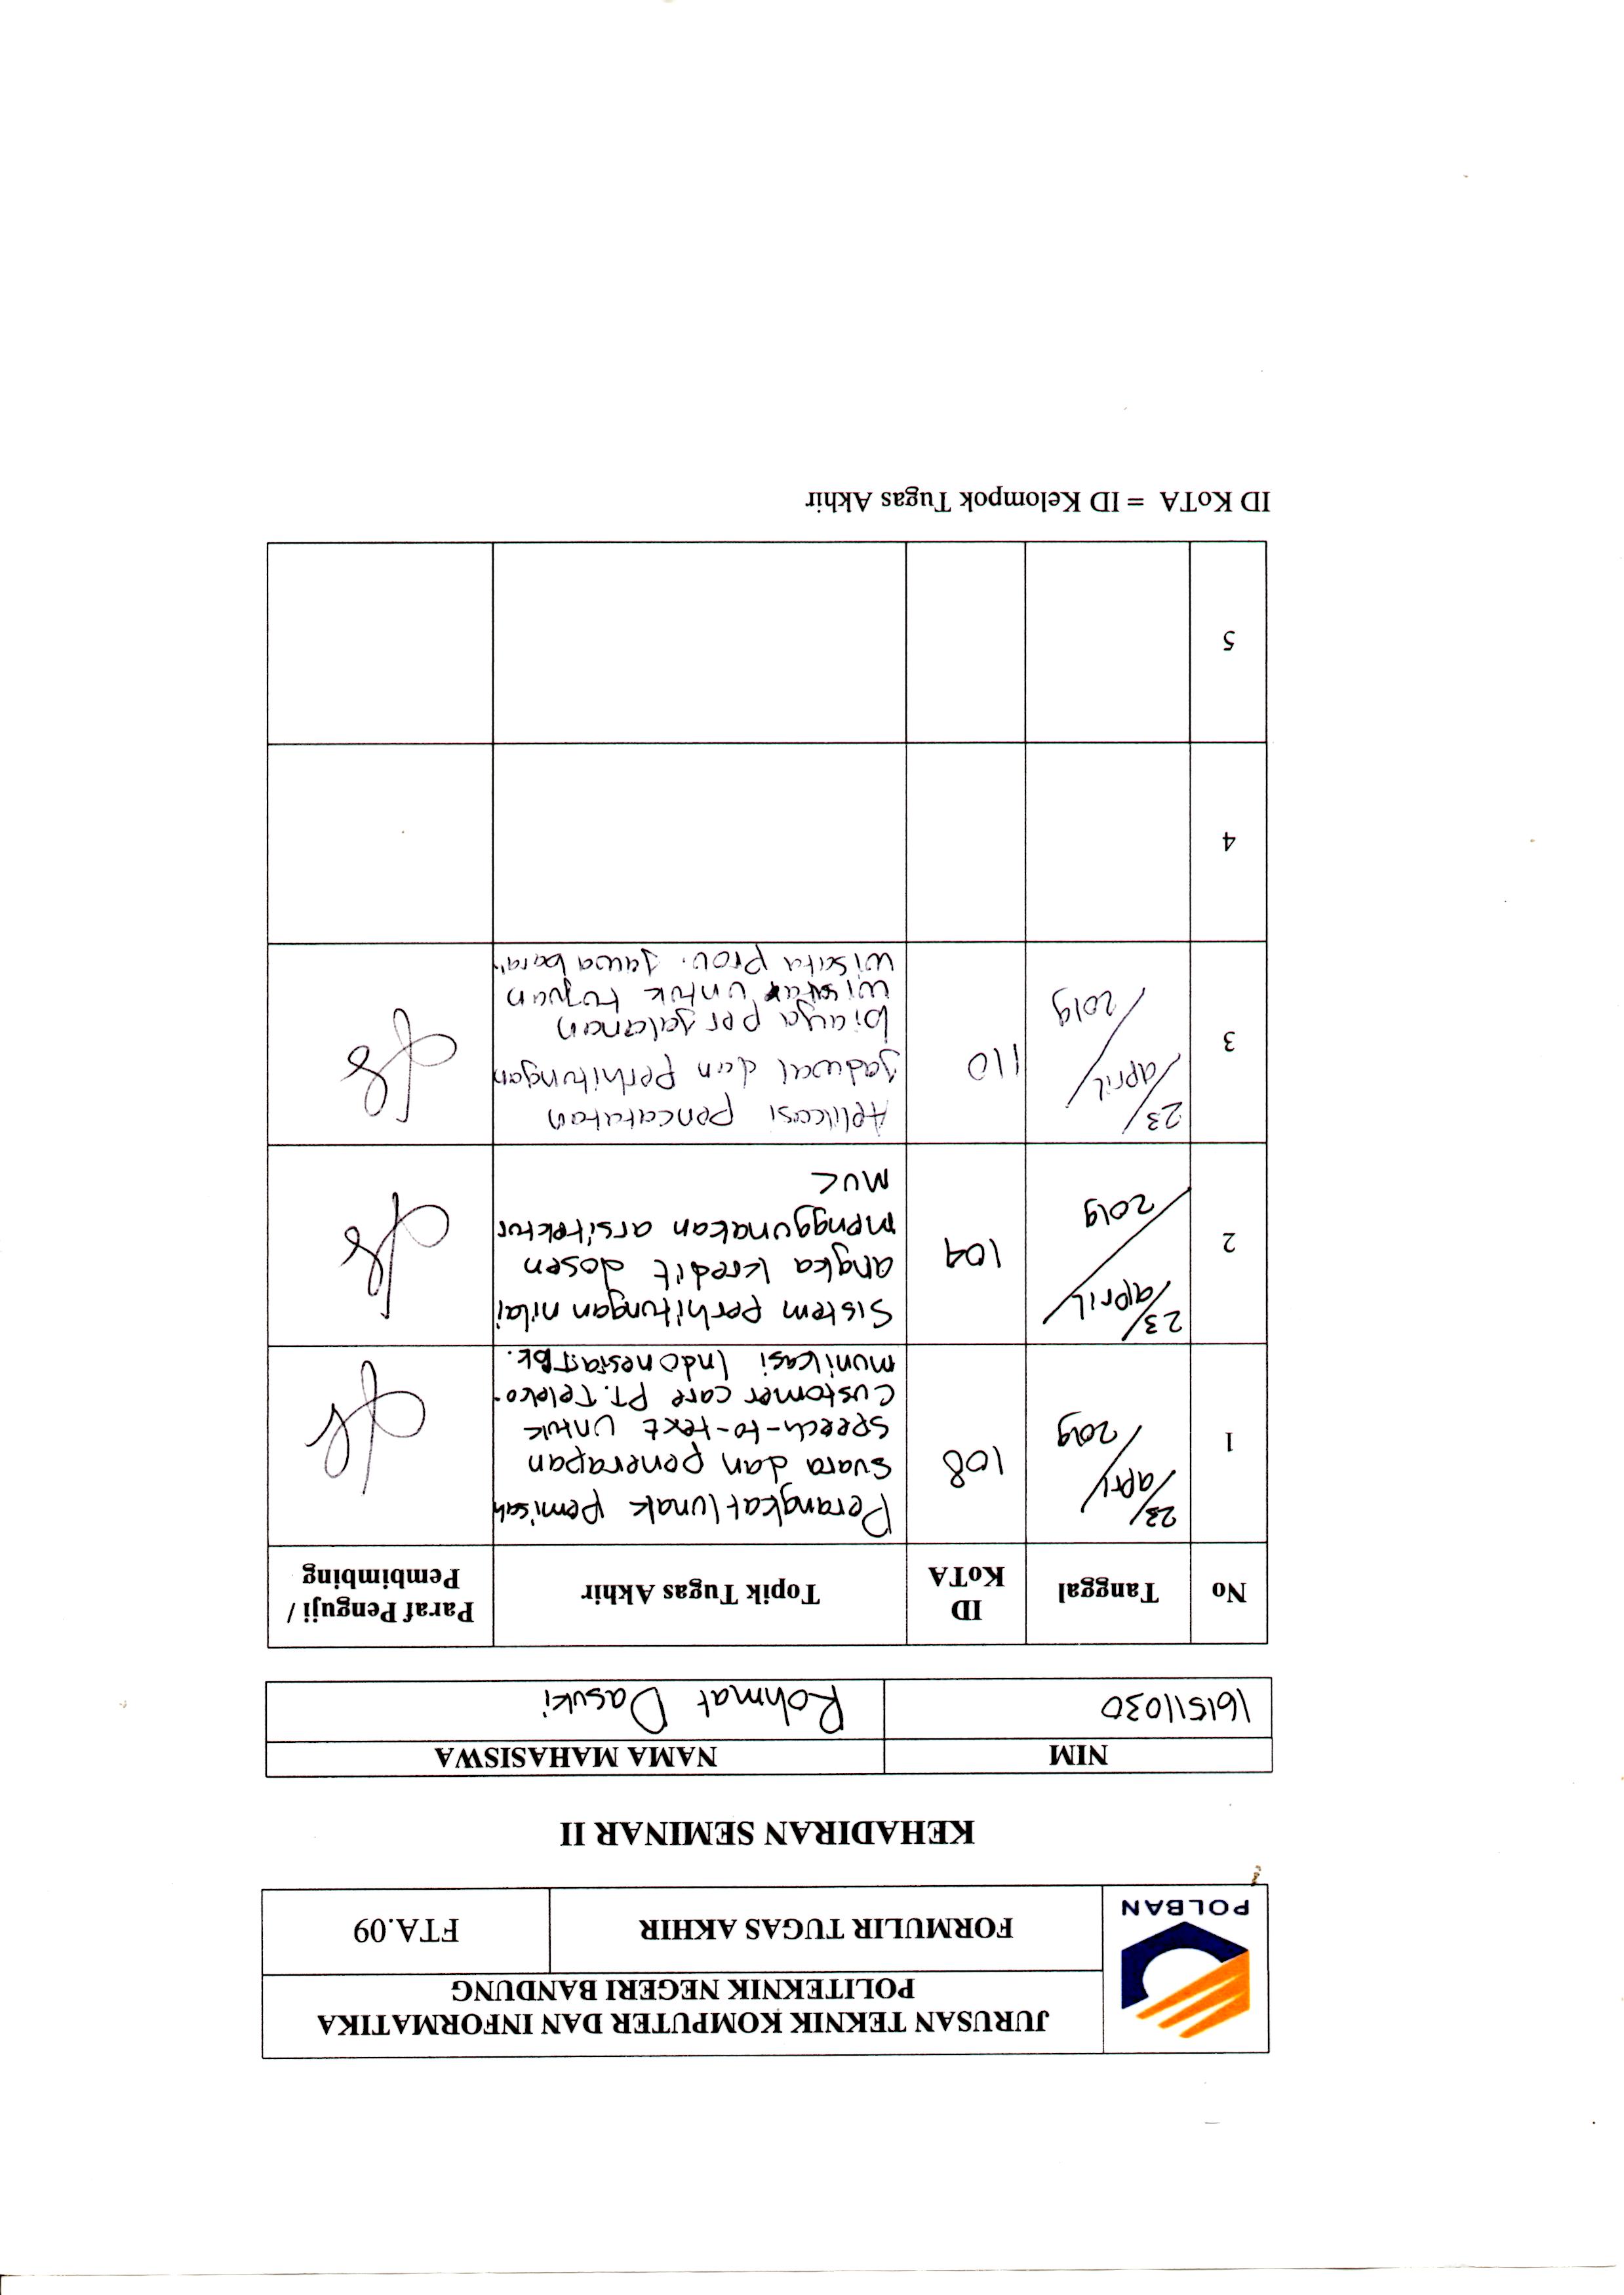 POLBAN
JURUSAN TEKNIK KOMPUTER DAN INFORMATIKA
POLITEKNIK NEGERI BANDUNG
FORMULIR TUGAS AKHIR
FTA.09
KEHADIRAN SEMINAR II
NIM
NAMA MAHASISWA
161511030
Rohmat Dasuki
No
Tanggal
ID
KoTA
Topik Tugas Akhir
Paraf Penguji /
Pembimbing
1
23/
apri/
2019
108
Perangkatlunak pemisah
suara dan penerapan
speech-to-text untuk
customer care PT. Teleko-
munikasi Indonesia Tbk.
2
23/
april/
2019
109
Sistem perhitungan nilai
angka kredit dosen
menggunakan arsitektur
MVC
3
23/
april/
2019
110
Aplikasi pencatatan
jadwal dan perhitungan
biaya perjalanan
wisata untuk tujuan
wisata prov. Jawa barat
4
5
ID KoTA = ID Kelompok Tugas Akhir